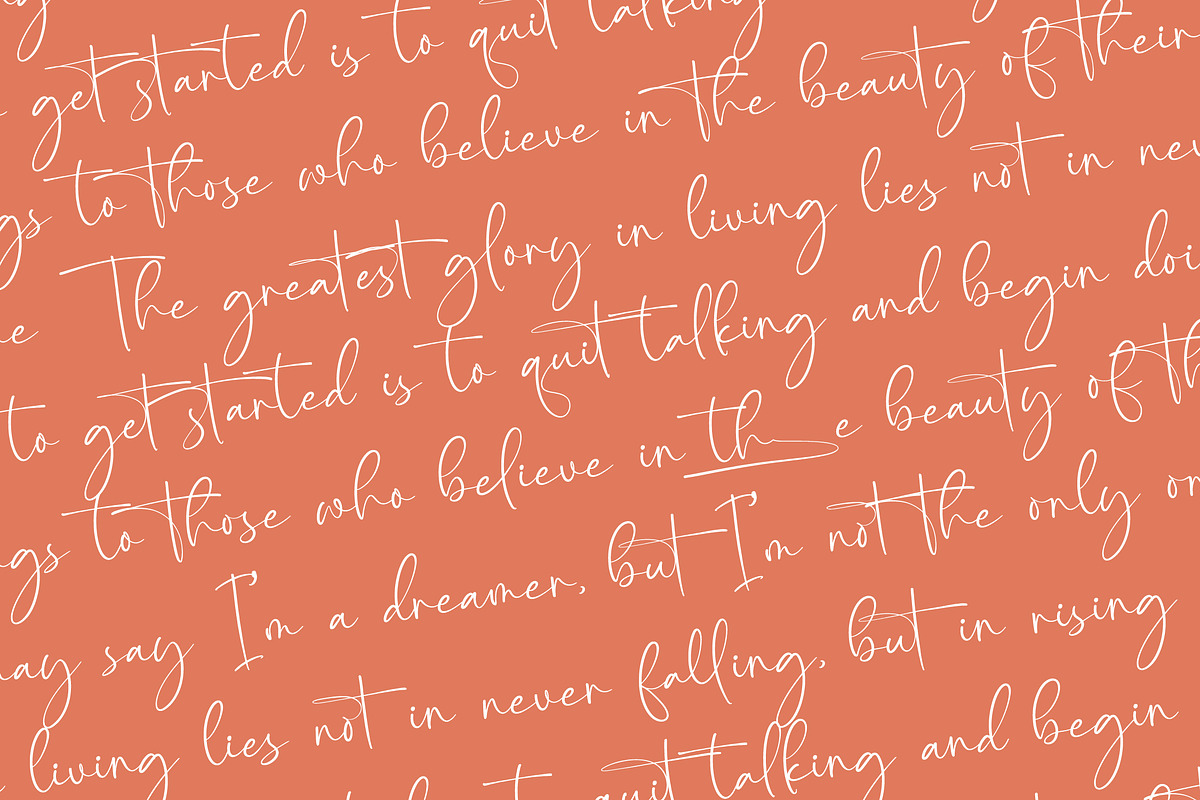 get started is to quit talking
gs to those who believe in the beauty of their
The greatest glory in living lies not in nev
to get started is to quit talking and begin doi
ngs to those who believe in the beauty of th
may say I'm a dreamer, but I'm not the only on
living lies not in never falling, but in rising
quit talking and begin